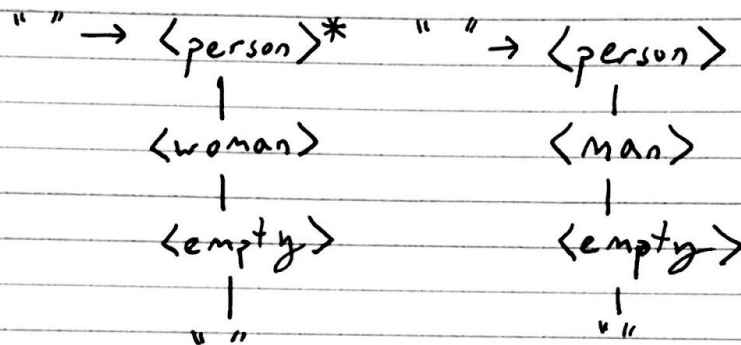 " " → <person>* " " → <person>
<woman> <man>
<empty> <empty>
" " " "